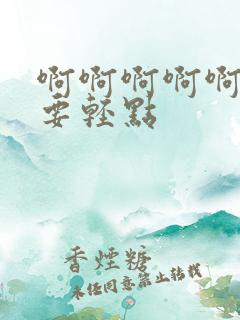 啊啊啊啊啊
要輕點
香煙糖
未經同意禁止轉載